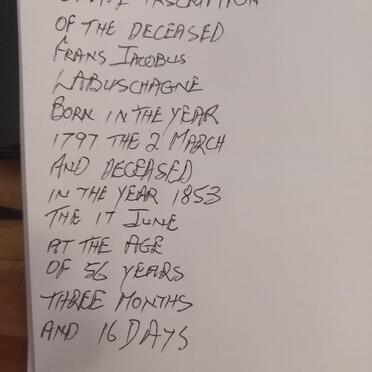 INSCRIPTION
OF THE DECEASED
FRANS JACOBUS
LABUSCHAGNE
BORN IN THE YEAR
1797 THE 2 MARCH
AND DECEASED
IN THE YEAR 1853
THE 17 JUNE
AT THE AGE
OF 56 YEARS
THREE MONTHS
AND 16 DAYS